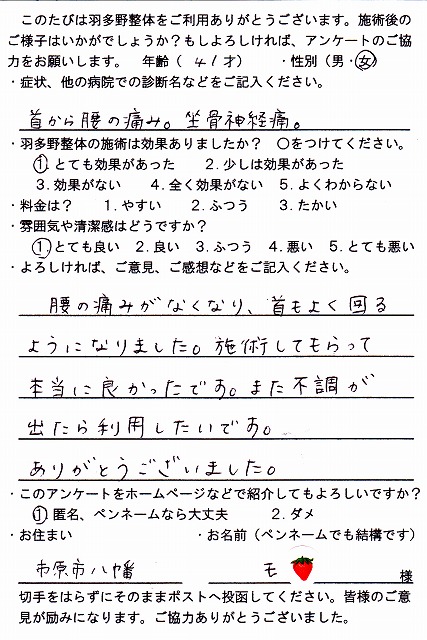 このたびは羽多野整体をご利用ありがとうございます。施術後の
ご様子はいかがでしょうか？もしよろしければ、アンケートのご協
力をお願いします。 年齢（ 41才） ・性別（男・女）
・症状、他の病院での診断名などをご記入ください。
首から腰の痛み。坐骨神経痛。
・羽多野整体の施術は効果ありましたか？ ○をつけてください。
1.とても効果があった 2.少しは効果があった
3.効果がない 4.全く効果がない 5.よくわからない
・料金は？ 1.やすい 2.ふつう 3.たかい
・雰囲気や清潔感はどうですか？
1とても良い 2.良い 3.ふつう 4.悪い 5.とても悪い
・よろしければ、ご意見、ご感想などをご記入ください。
腰の痛みがなくなり、首もよく回る
ようになりました。施術してもらって
本当に良かったです。また不調が
出たら利用したいです。
ありがとうございました。
・このアンケートをホームページなどで紹介してもよろしいですか？
1匿名、ペンネームなら大丈夫 2.ダメ
・お住まい ・お名前（ペンネームでも結構です）
市原市八幡 モ 様
切手をはらずにそのままポストへ投函してください。皆様のご意
見が励みになります。ご協力ありがとうございました。